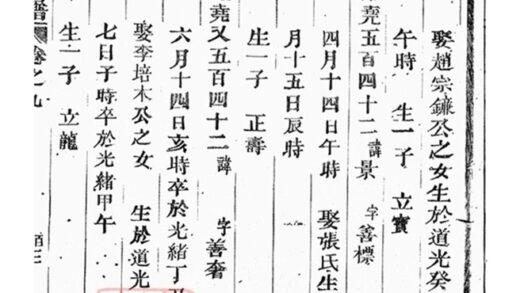 娶趙宗鐮公之女生於道光癸
午時 生一子 立寶
堯五百四十二 諱景 字善標
四月十四日午時 娶張氏生
月十五日辰時
生一子 正壽
堯又五百四十二 諱 字善奢
六月十四日亥時卒於光緒丁
娶李培木公之女 生於道光
七日子時卒於光緒甲午
生一子 立龍
卷之九